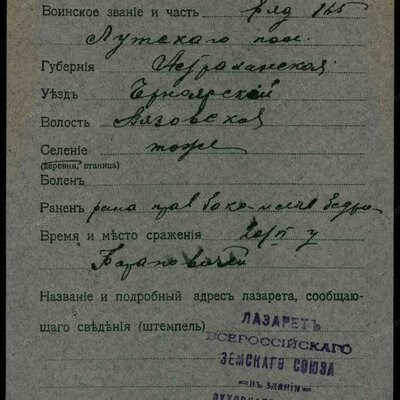 Воинское званіе и часть ряд 165
Лутскаго пол.
Губернія Астраханская
Уѣздъ Черноярскій
Волость Вязовская
Селеніе тоже
(деревня, станица)
Боленъ
Раненъ рана прав бока
Время и мѣсто сраженія 20/ у
Названіе и подробный адресъ лазарета, сообщаю-
щаго свѣдѣнія (штемпель)
ЛАЗАРЕТЪ
ВСЕРОССІЙСКАГО
ЗЕМСКАГО СОЮЗА
ВЪ ЗДАНІИ